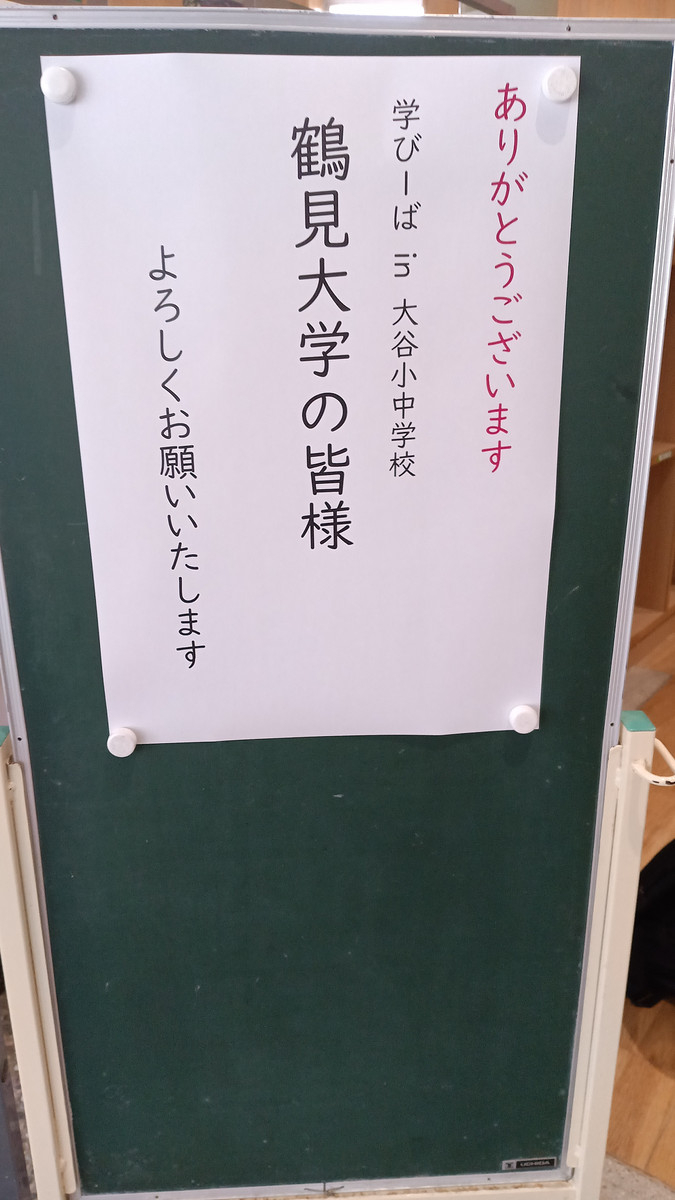 ありがとうございます
学びーば in 大谷小中学校
鶴見大学の皆様
よろしくお願いいたします
UCHIDA